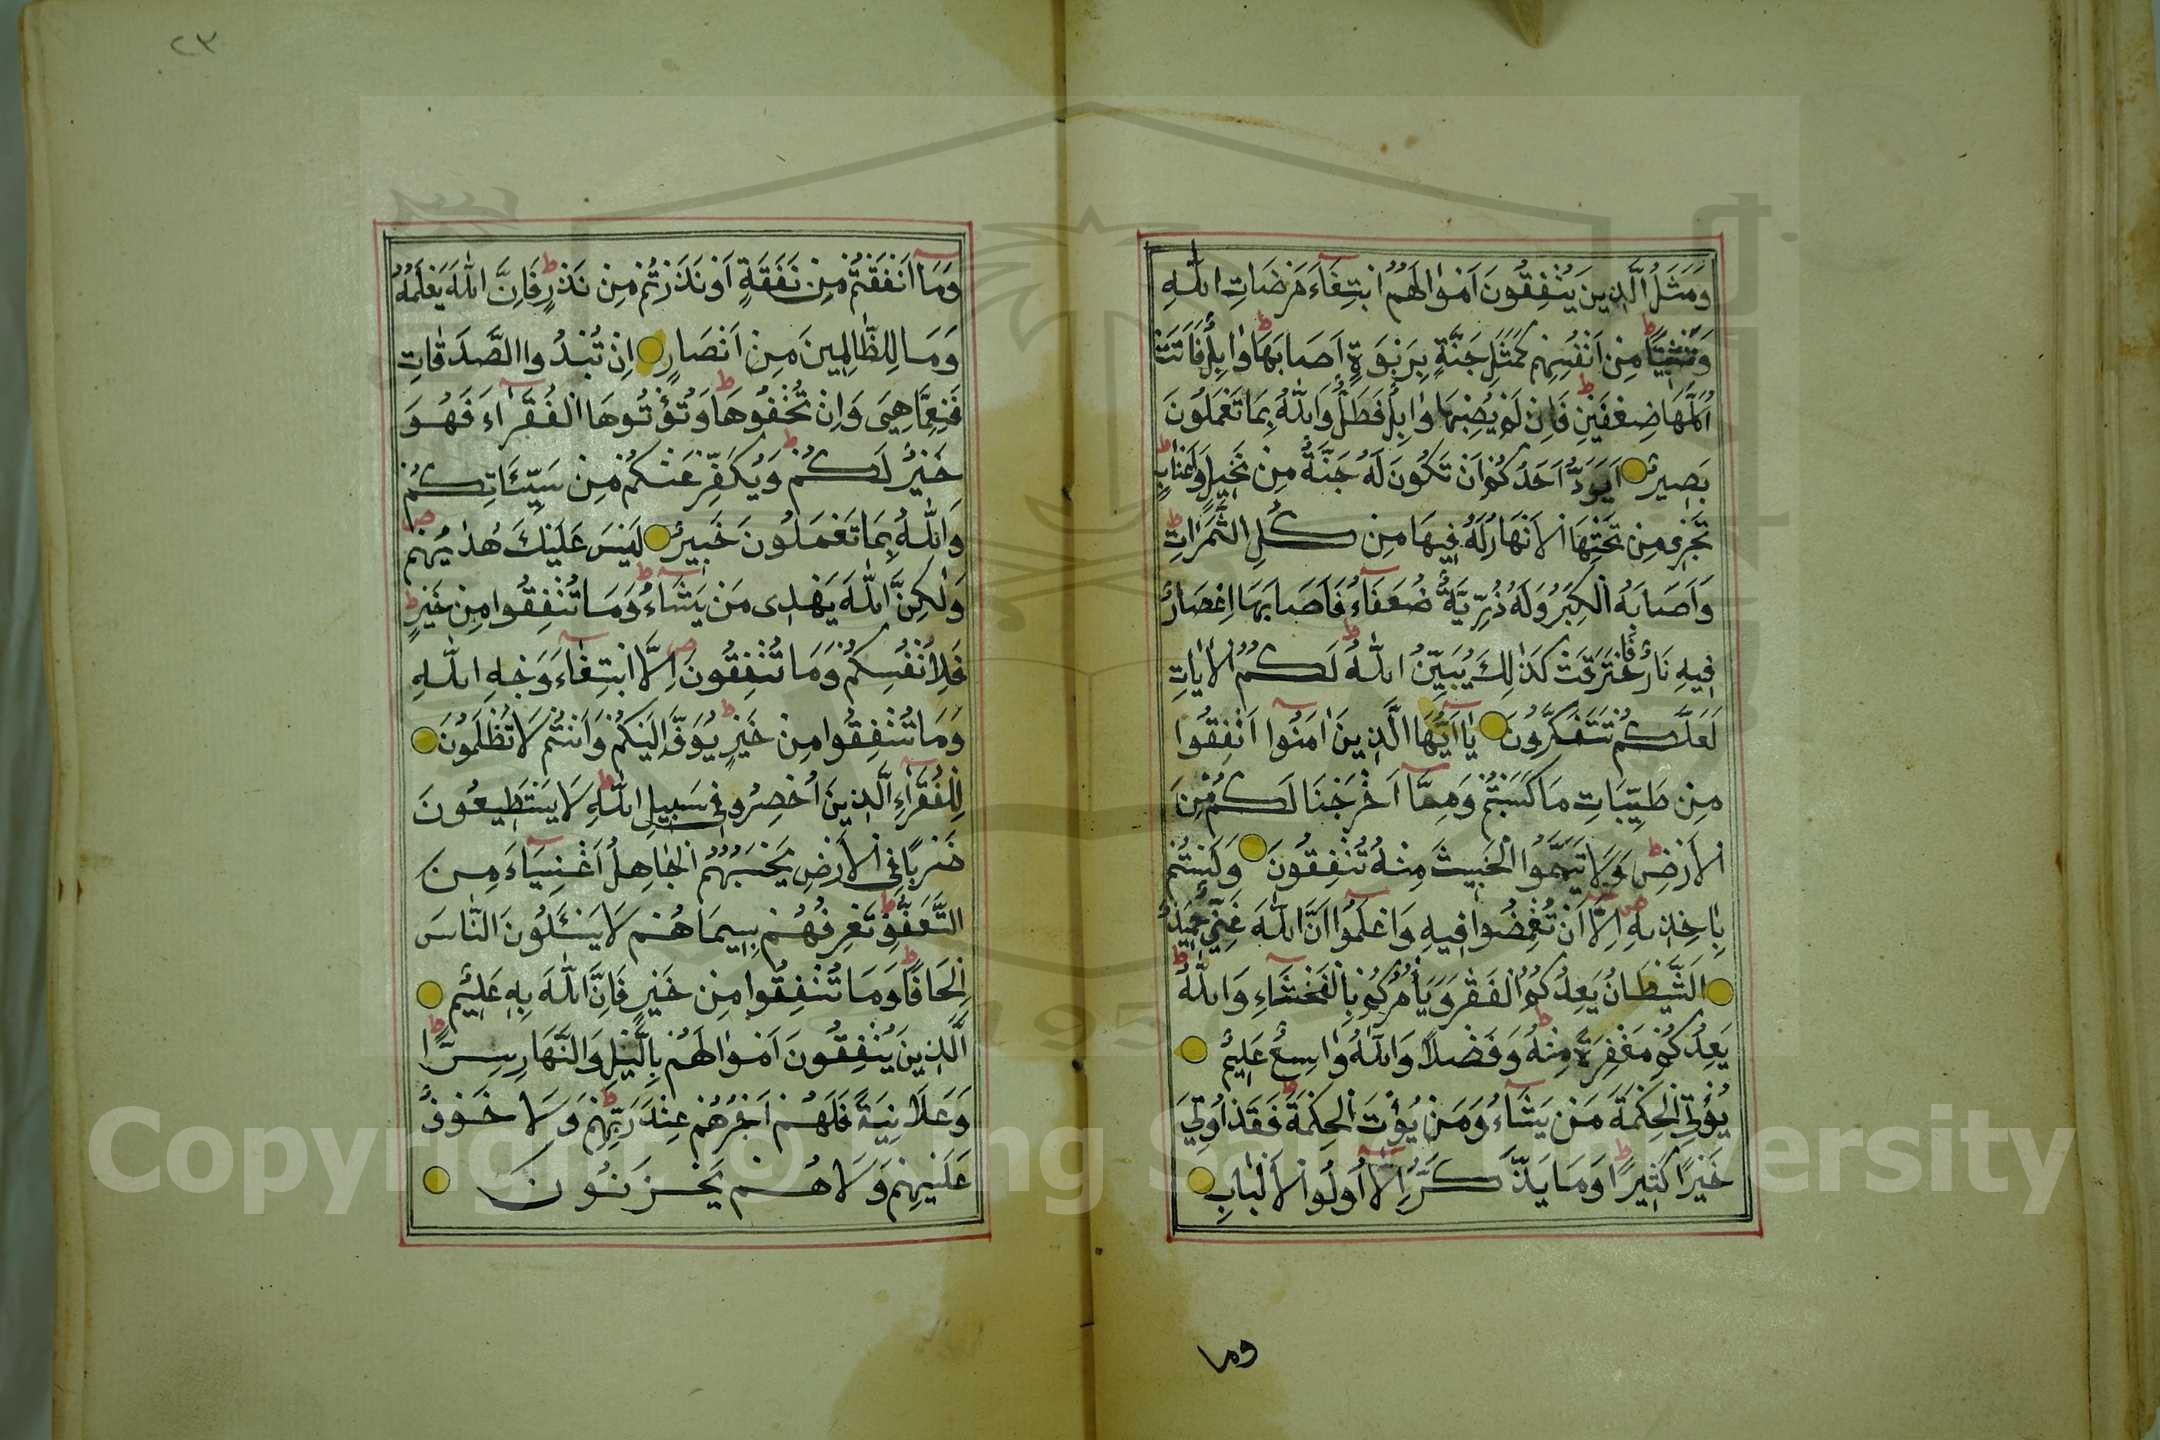 وَمَثَلُ الَّذِينَ يُنْفِقُونَ اَمْوَالَهُمُ ابْتِغَاءَ مَرْضَاتِ اللّٰهِ
وَتَثْبِيتًا مِنْ اَنْفُسِهِمْ كَمَثَلِ جَنَّةٍ بِرَبْوَةٍ اَصَابَهَا وَابِلٌ فَاٰتَتْ
اُكُلَهَا ضِعْفَيْنِ فَاِنْ لَمْ يُصِبْهَا وَابِلٌ فَطَلٌّ وَاللّٰهُ بِمَا تَعْمَلُونَ
بَصِيرٌ اَيَوَدُّ اَحَدُكُمْ اَنْ تَكُونَ لَهُ جَنَّةٌ مِنْ نَخِيلٍ وَاَعْنَابٍ
تَجْرِى مِنْ تَحْتِهَا الْاَنْهَارُ لَهُ فِيهَا مِنْ كُلِّ الثَّمَرَاتِ
وَاَصَابَهُ الْكِبَرُ وَلَهُ ذُرِّيَّةٌ ضُعَفَاءُ فَاَصَابَهَا اِعْصَارٌ
فِيهِ نَارٌ فَاحْتَرَقَتْ كَذٰلِكَ يُبَيِّنُ اللّٰهُ لَكُمُ الْاٰيَاتِ
لَعَلَّكُمْ تَتَفَكَّرُونَ يَا اَيُّهَا الَّذِينَ اٰمَنُوا اَنْفِقُوا
مِنْ طَيِّبَاتِ مَا كَسَبْتُمْ وَمِمَّا اَخْرَجْنَا لَكُمْ مِنَ
الْاَرْضِ وَلَا تَيَمَّمُوا الْخَبِيثَ مِنْهُ تُنْفِقُونَ وَلَسْتُمْ
بِاٰخِذِيهِ اِلَّا اَنْ تُغْمِضُوا فِيهِ وَاعْلَمُوا اَنَّ اللّٰهَ غَنِيٌّ حَمِيدٌ
اَلشَّيْطَانُ يَعِدُكُمُ الْفَقْرَ وَيَأْمُرُكُمْ بِالْفَحْشَاءِ وَاللّٰهُ
يَعِدُكُمْ مَغْفِرَةً مِنْهُ وَفَضْلًا وَاللّٰهُ وَاسِعٌ عَلِيمٌ
يُؤْتِي الْحِكْمَةَ مَنْ يَشَاءُ وَمَنْ يُؤْتَ الْحِكْمَةَ فَقَدْ اُوتِيَ
خَيْرًا كَثِيرًا وَمَا يَذَّكَّرُ اِلَّا اُولُوا الْاَلْبَابِ
وما
٢٣
وَمَا اَنْفَقْتُمْ مِنْ نَفَقَةٍ اَوْ نَذَرْتُمْ مِنْ نَذْرٍ فَاِنَّ اللّٰهَ يَعْلَمُهُ
وَمَا لِلظَّالِمِينَ مِنْ اَنْصَارٍ اِنْ تُبْدُوا الصَّدَقَاتِ
فَنِعِمَّا هِيَ وَاِنْ تُخْفُوهَا وَتُؤْتُوهَا الْفُقَرَاءَ فَهُوَ
خَيْرٌ لَكُمْ وَيُكَفِّرُ عَنْكُمْ مِنْ سَيِّئَاتِكُمْ
وَاللّٰهُ بِمَا تَعْمَلُونَ خَبِيرٌ لَيْسَ عَلَيْكَ هُدٰيهُمْ
وَلٰكِنَّ اللّٰهَ يَهْدِى مَنْ يَشَاءُ وَمَا تُنْفِقُوا مِنْ خَيْرٍ
فَلِاَنْفُسِكُمْ وَمَا تُنْفِقُونَ اِلَّا ابْتِغَاءَ وَجْهِ اللّٰهِ
وَمَا تُنْفِقُوا مِنْ خَيْرٍ يُوَفَّ اِلَيْكُمْ وَاَنْتُمْ لَا تُظْلَمُونَ
لِلْفُقَرَاءِ الَّذِينَ اُحْصِرُوا فِي سَبِيلِ اللّٰهِ لَا يَسْتَطِيعُونَ
ضَرْبًا فِي الْاَرْضِ يَحْسَبُهُمُ الْجَاهِلُ اَغْنِيَاءَ مِنَ
التَّعَفُّفِ تَعْرِفُهُمْ بِسِيمَاهُمْ لَا يَسْئَلُونَ النَّاسَ
اِلْحَافًا وَمَا تُنْفِقُوا مِنْ خَيْرٍ فَاِنَّ اللّٰهَ بِهِ عَلِيمٌ
اَلَّذِينَ يُنْفِقُونَ اَمْوَالَهُمْ بِاللَّيْلِ وَالنَّهَارِ سِرًّا
وَعَلَانِيَةً فَلَهُمْ اَجْرُهُمْ عِنْدَ رَبِّهِمْ وَلَا خَوْفٌ
عَلَيْهِمْ وَلَا هُمْ يَحْزَنُونَ
Copyright © King Saud University
1957